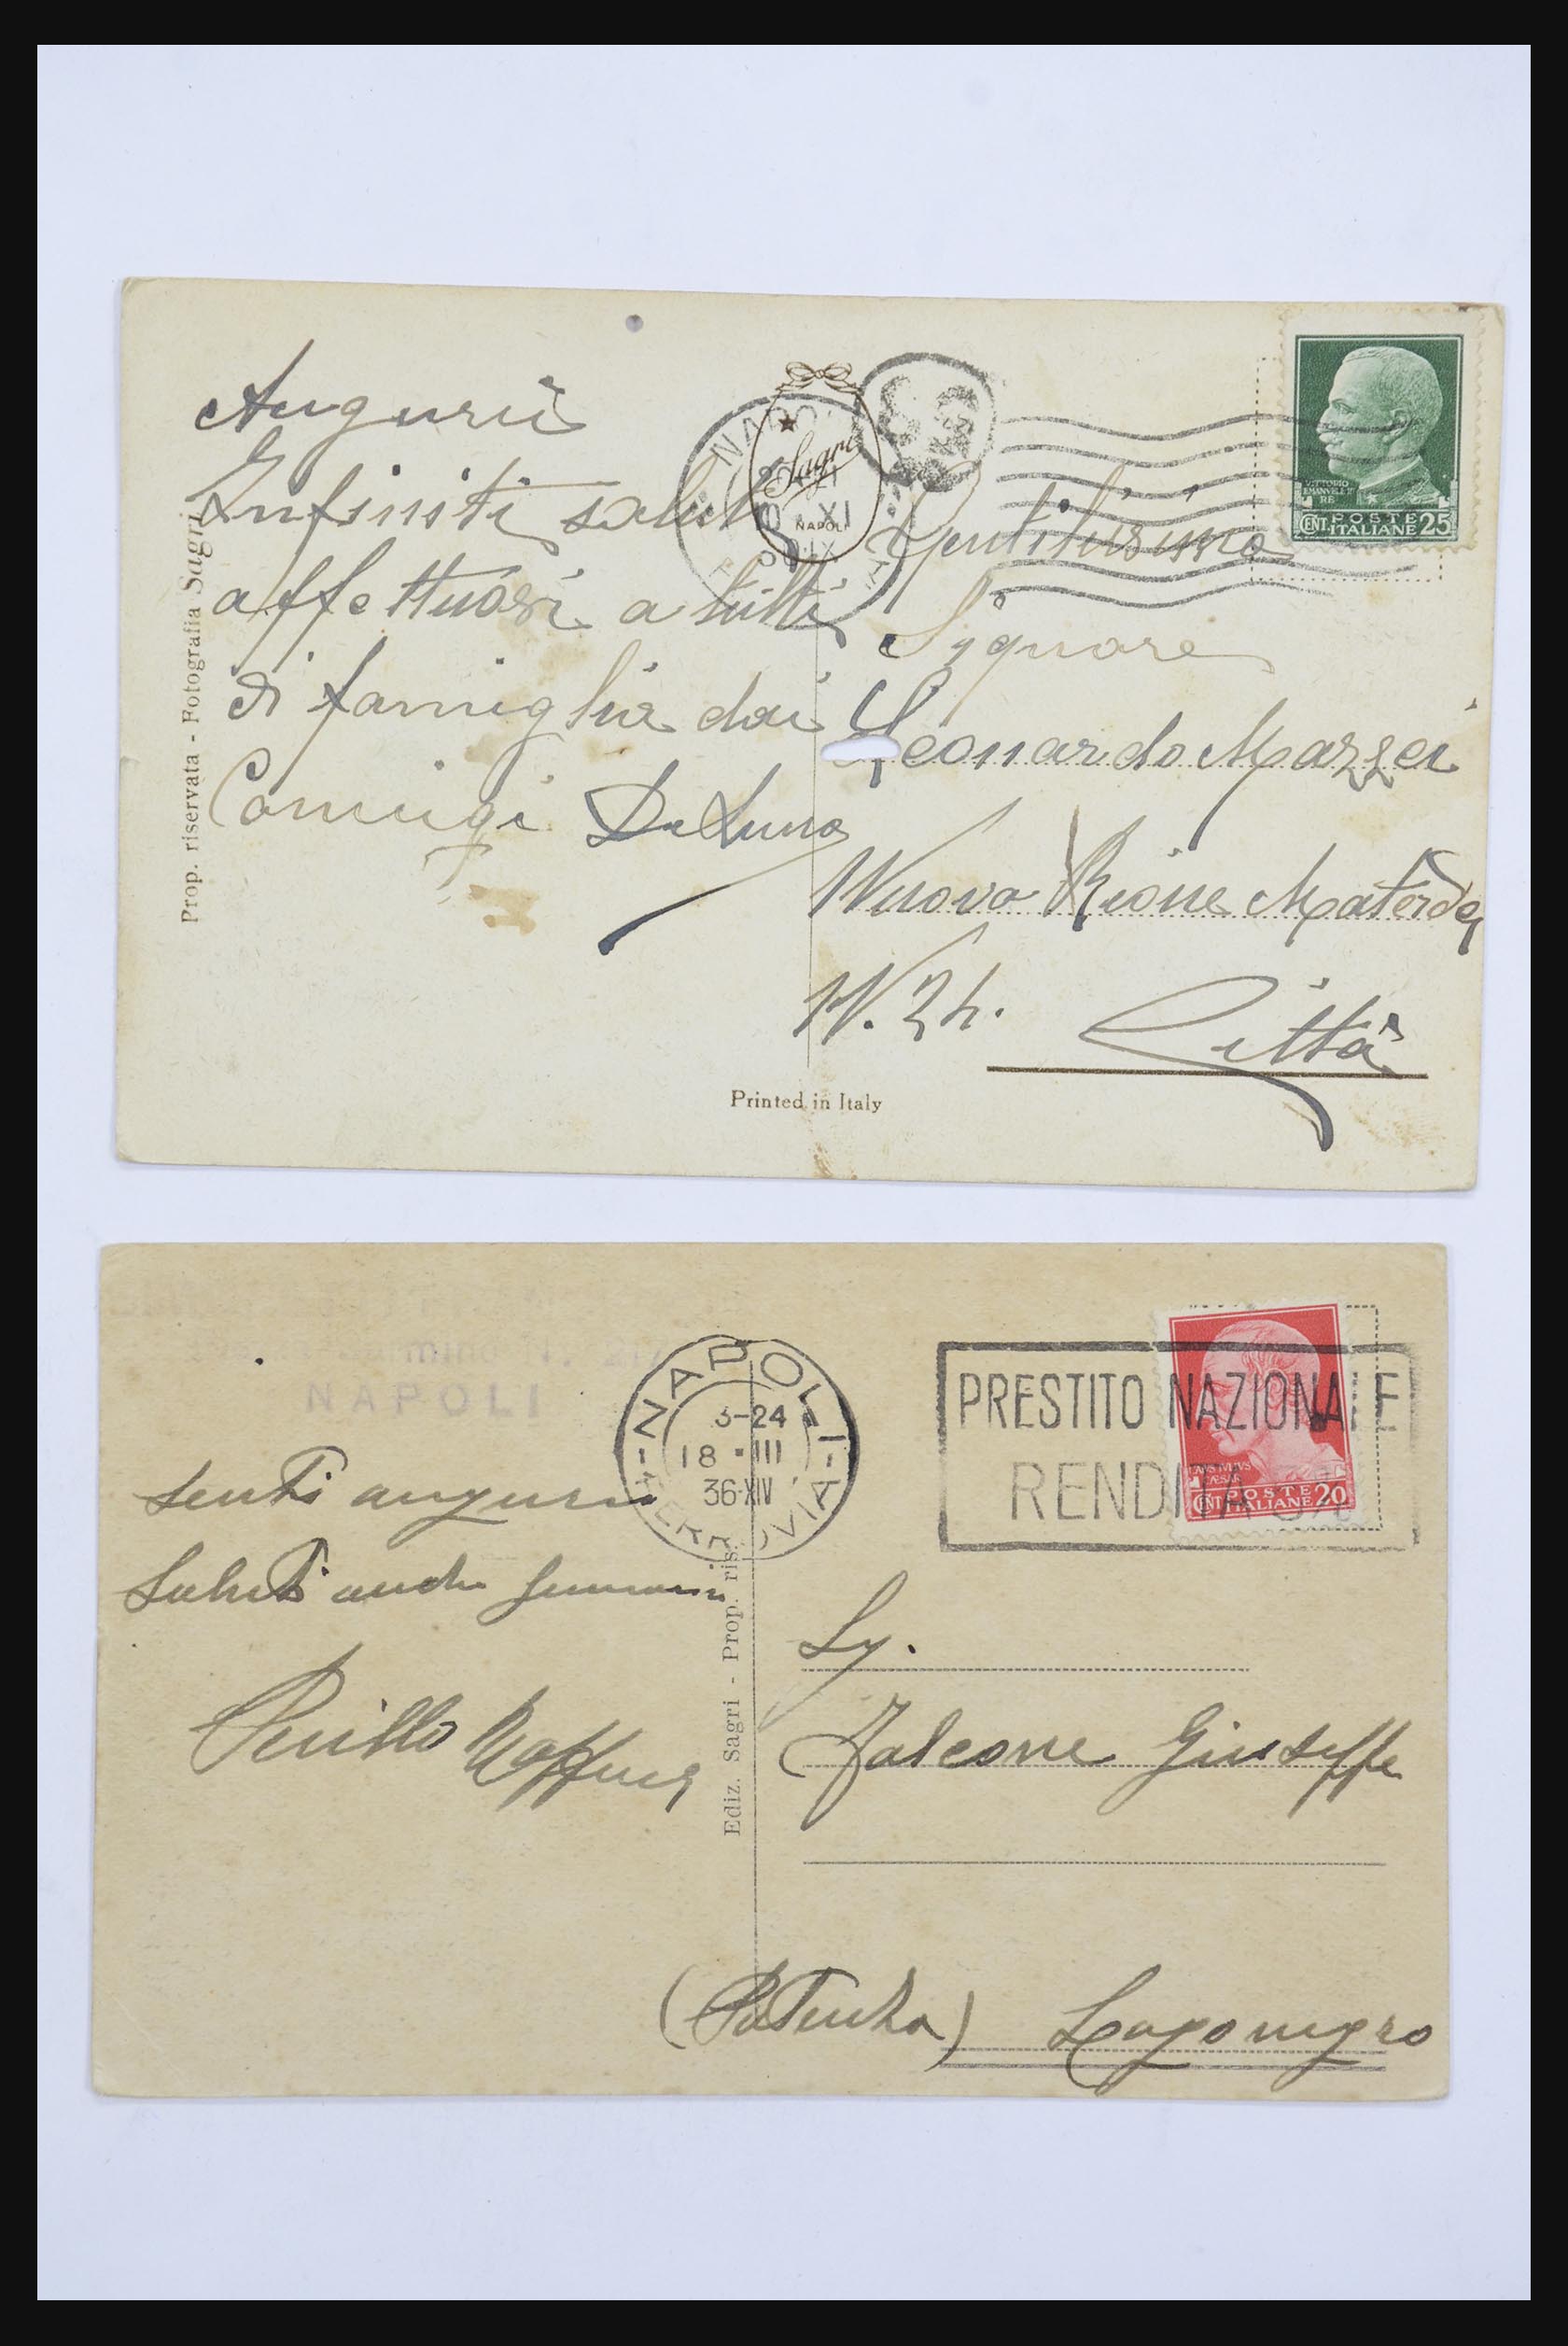 Auguri
Infiniti saluti
affettuosi a tutti
di famiglia dai
Coniugi De Luna
Prop. riservata - Fotografia Sagri
Sagri
NAPOLI
NAPO
XI
VITTORIO
EMANVELE III
RE
CENT. POSTE ITALIANE 25
Gentilissimo
Signore
Leonardo Mazzei
Nuovo Rione Materdei
N. 24.
Città
Printed in Italy
NAPOLI
NAPOLI
FERROVIA
3-24
18 · III
36·XIV
PRESTITO NAZIONALE
RENDITA 5%
CAESAR
CENT. POSTE ITALIANE 20
Senti auguri
Saluti anche
Perillo
Ediz. Sagri - Prop. ris.
Sig.
Falcone Giuseppe
(Potenza) Lagonegro